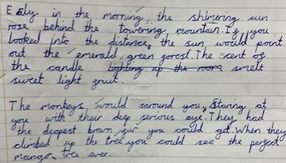 Early in the morning, the shimering sun
rose behind the towering mountain. If you
looked into the distance, the sun would point
out the emerald, green forest. The scent of
the candle lighting up the room smelt
sweet light fruit.
The monkeys, would saround you, Staring at
you with their deep serious eye. They had
the deepest brown, you could get. When they
climbed up the tree you could see the perfect
mango tree ever.